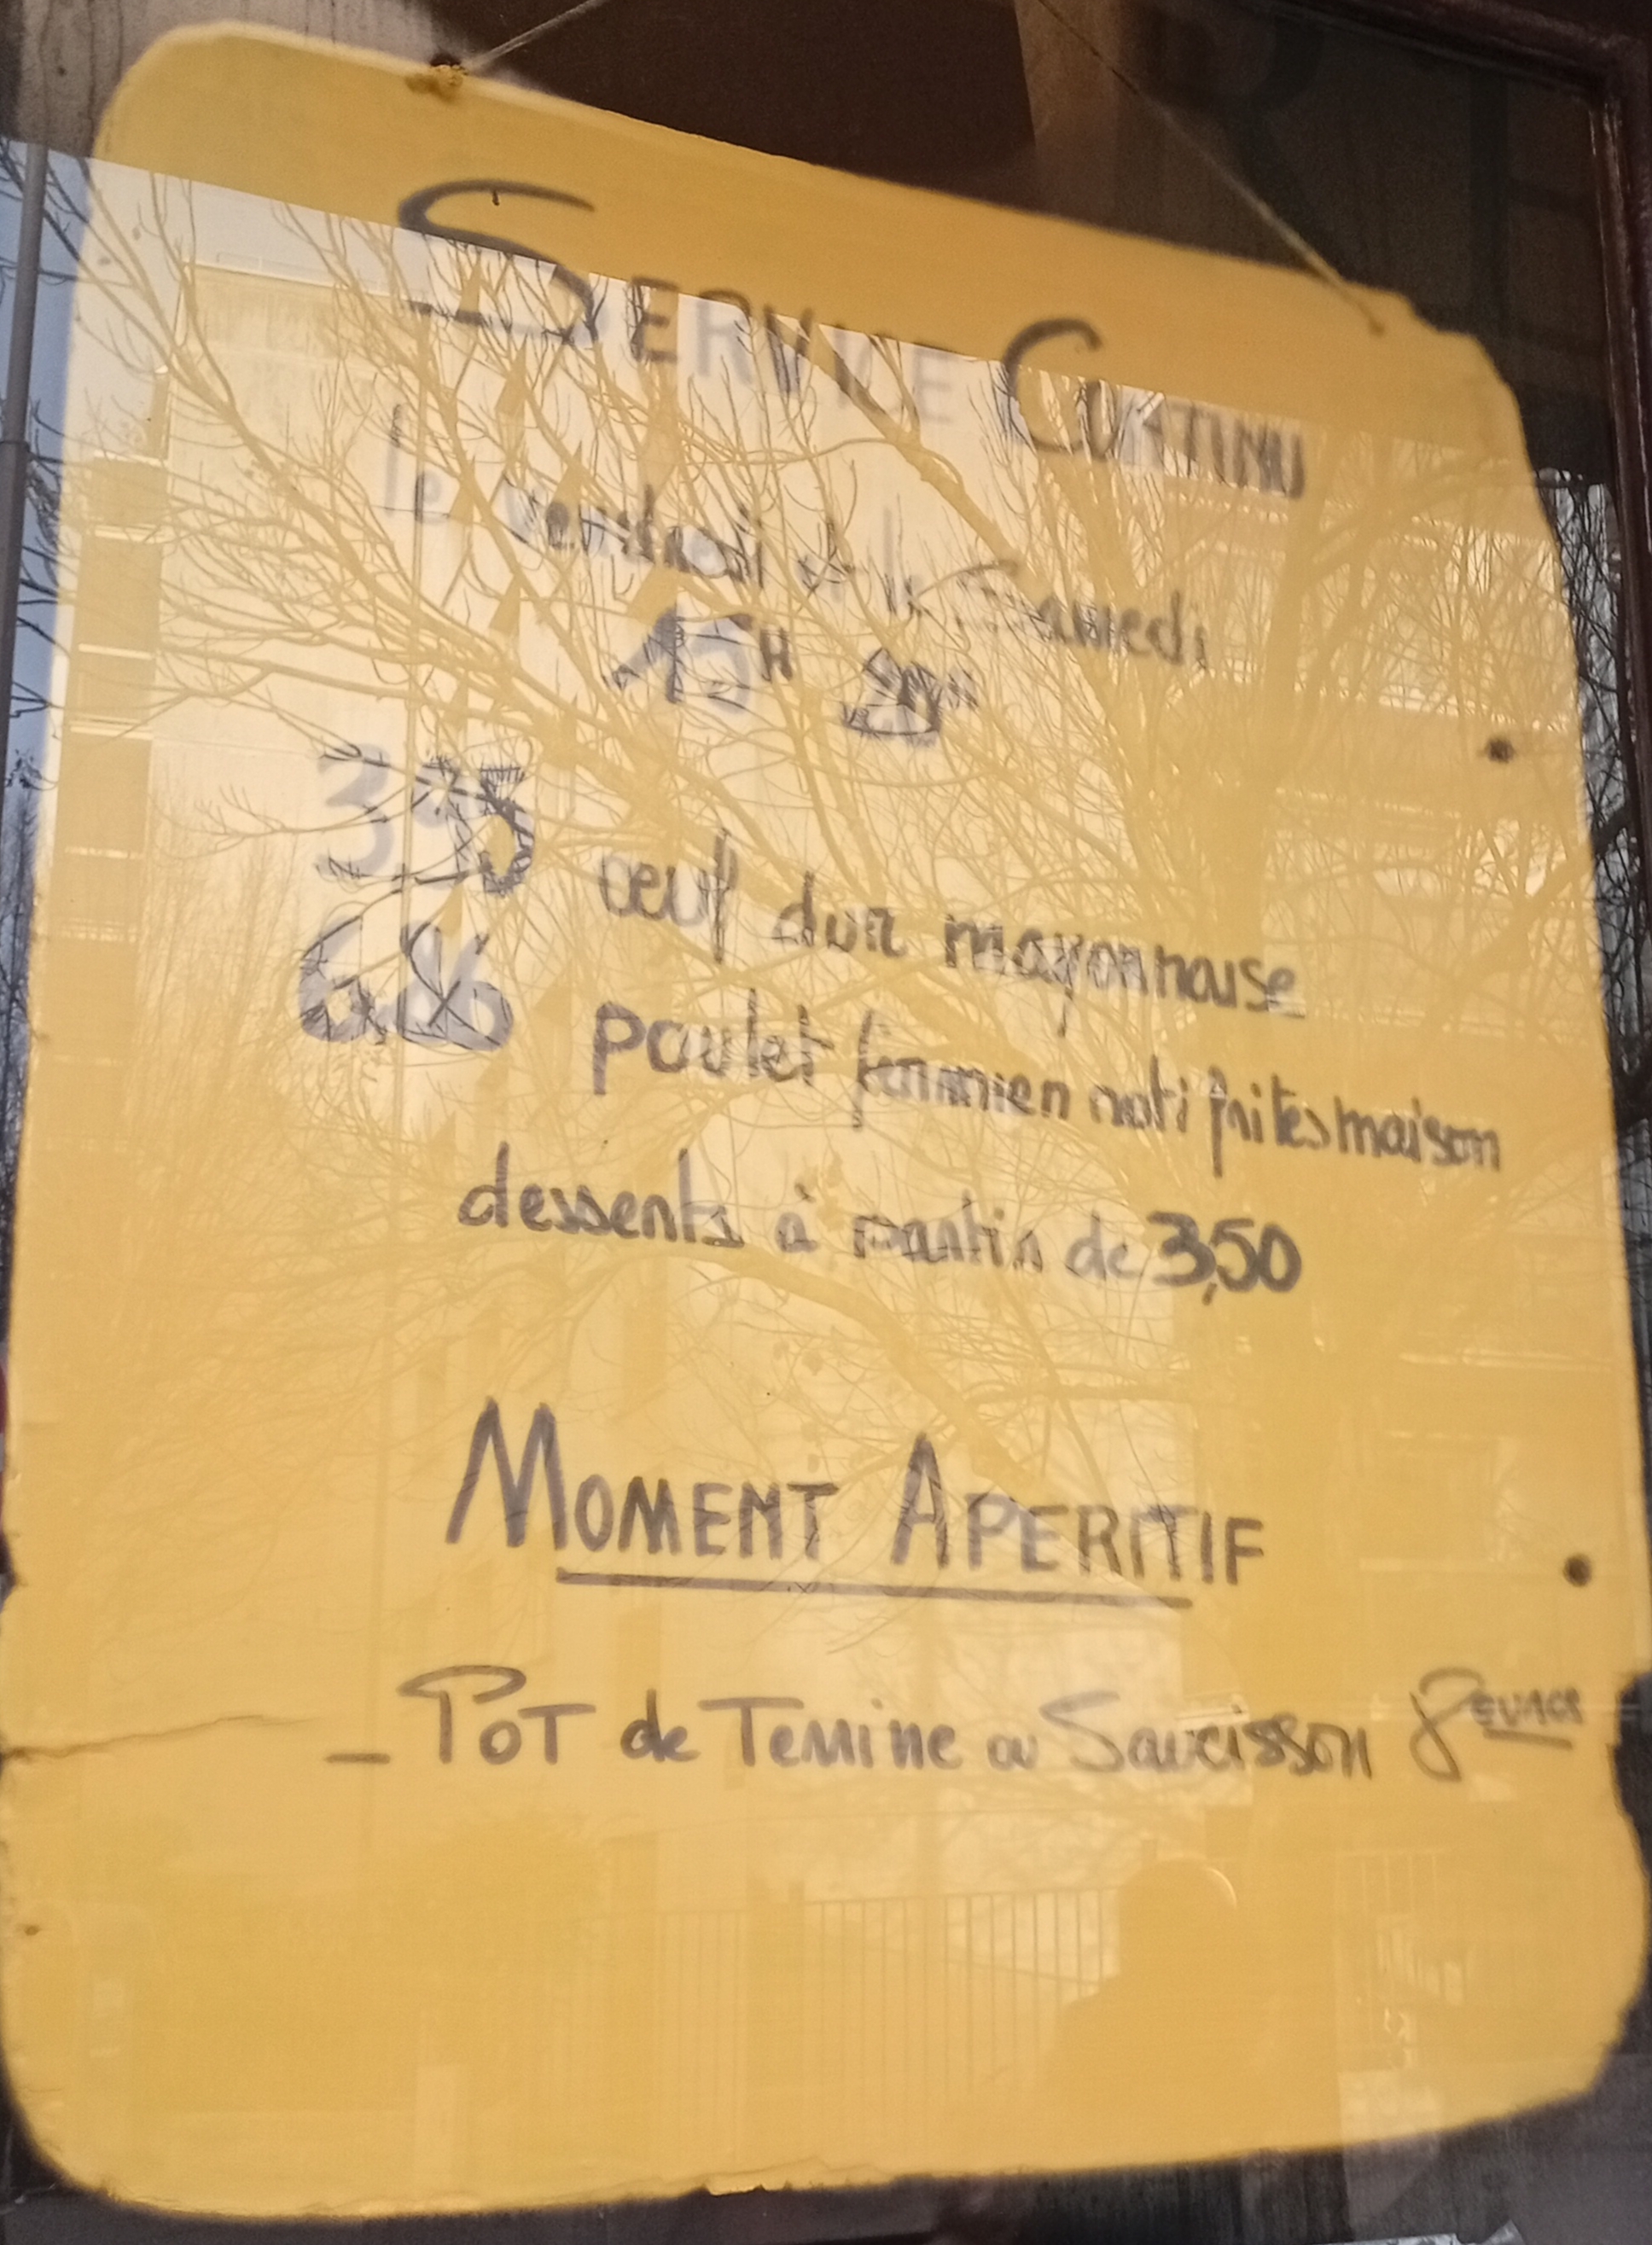 SERVICE CONTINU
le vendredi et le Samedi
15H 20H
œuf dur mayonnaise
poulet fermier roti frites maison
desserts à partir de 3,50
MOMENT APERITIF
_ POT de TERRINE ou Saucisson